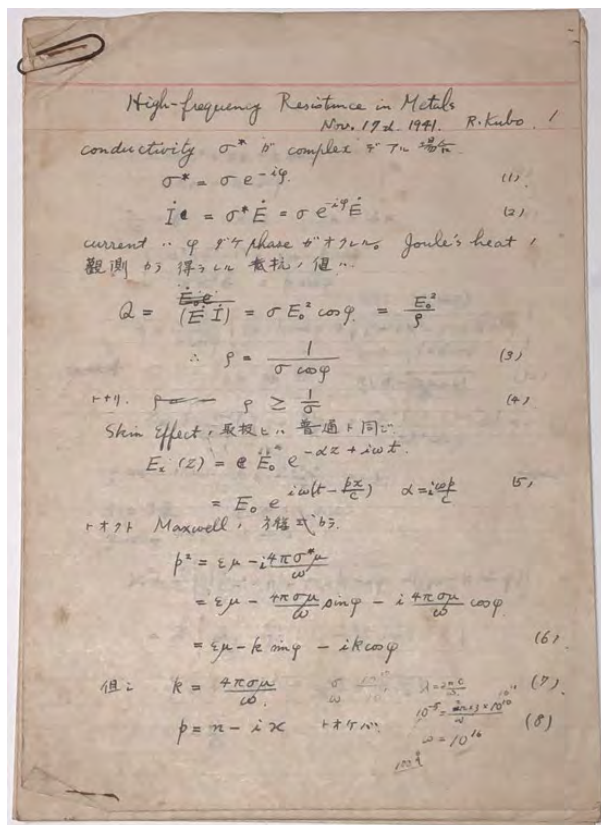 High-frequency Resistance in Metals
Nov. 17th 1941. R. Kubo. 1
conductivity σ* ガ complex デアル場合.
σ* = σ e^{-iφ}. (1)
İ = σ* Ė = σ e^{-iφ} Ė (2)
current ハ φ ダケ phase ガオクレル。 Joule's heat ノ
観測カラ得ラレル抵抗ノ値ハ
Q = (Ė İ) = σ E₀² cosφ = E₀²/ρ
∴ ρ = 1/(σ cosφ) (3)
トナリ. ρ ≥ 1/σ (4)
Skin Effect ノ取扱ヒハ普通ト同じ.
Eₓ(z) = E₀ e^{-αz + iωt}.
= E₀ e^{iω(t - pz/c)} α = iωp/c (5)
トオクト Maxwell ノ方程式カラ.
p² = εμ - i 4πσ*μ/ω
= εμ - 4πσμ/ω sinφ - i 4πσμ/ω cosφ.
= εμ - k sinφ - ik cosφ (6)
但シ k = 4πσμ/ω. σ/ω λ = 2πc/ω (7)
p = n - iϰ トオケバ. 10⁻⁵ = 2π×3×10¹⁰/ω (8)
ω = 10¹⁶